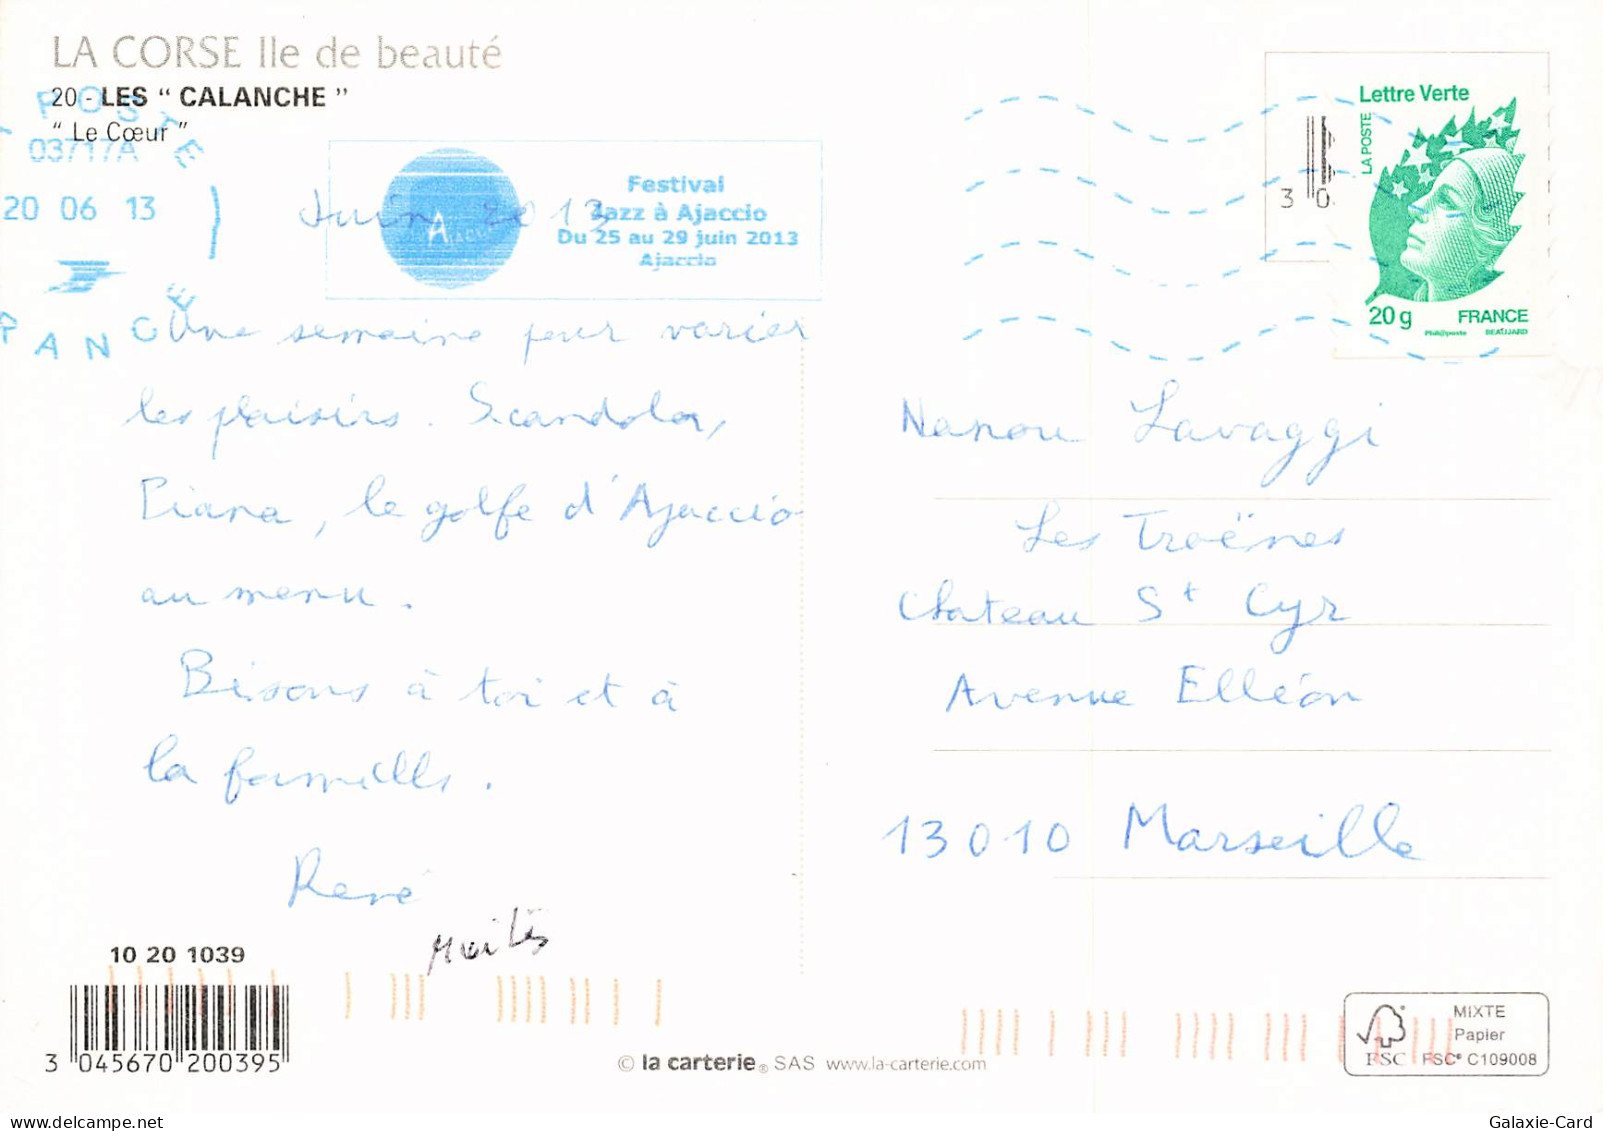 LA CORSE Ile de beauté
20 - LES “ CALANCHE ”
“ Le Cœur ”
POSTE
03717A
20 06 13
FRANCE
Festival
Jazz à Ajaccio
Du 25 au 29 juin 2013
Ajaccio
Juin 2013
Une semaine pour varier
les plaisirs. Scandola,
Piana, le golfe d'Ajaccio
au menu.
Bisous à toi et à
la famille.
René
10 20 1039
3 045670 200395
Lettre Verte
LA POSTE
3 0
20 g FRANCE
Phil@poste BEAUJARD
Nanou Lavaggi
Les Troënes
Chateau St Cyr
Avenue Elléon
13010 Marseille
© la carterie® SAS www.la-carterie.com
MIXTE
Papier
FSC FSC® C109008
Galaxie-Card